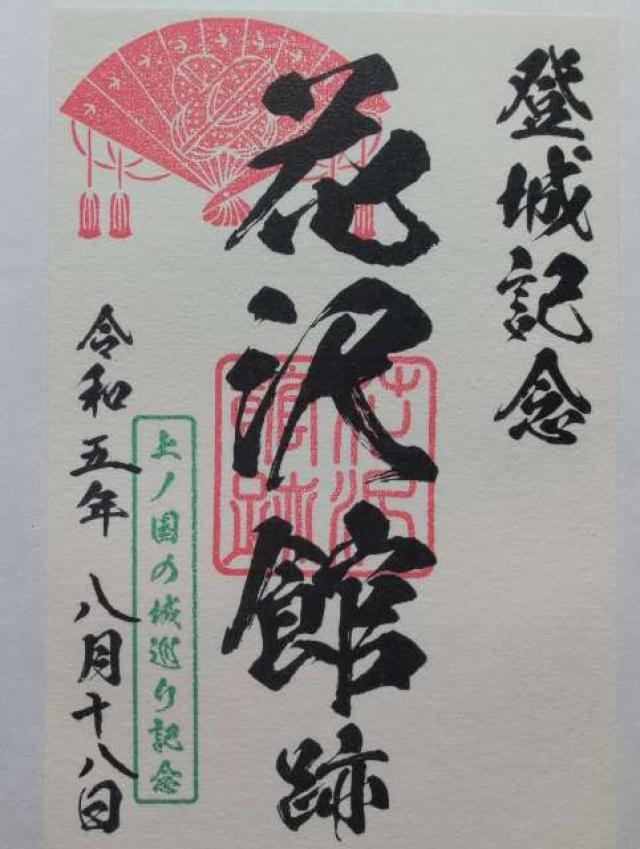 登城記念
花沢館跡
花沢館跡
上ノ国の城巡り記念
令和五年 八月十八日